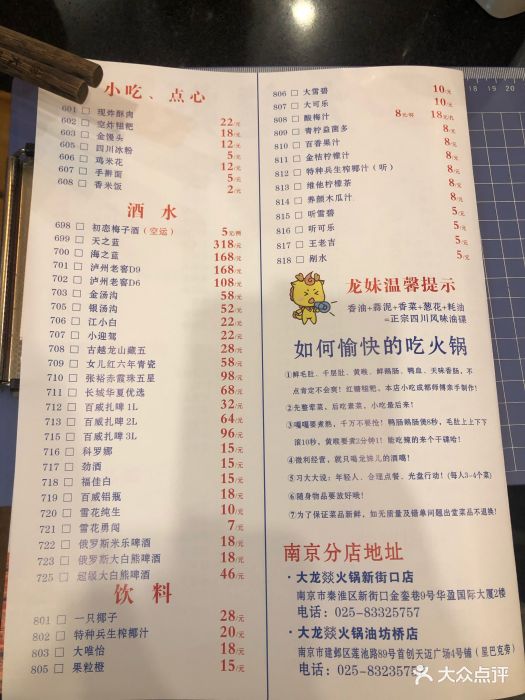 小吃、点心
601 现炸酥肉 22/元
602 空炸糍粑 18/元
603 金馒头 12/元
605 四川冰粉 5/元
606 鸡米花 12/元
607 手擀面 5/元
608 香米饭 2/元
酒水
698 初恋梅子酒(空运) 5元/杯
699 天之蓝 318/元
700 海之蓝 168/元
701 泸州老窖D9 168/元
702 泸州老窖D6 108/元
703 金汤沟 58/元
705 银汤沟 52/元
706 江小白 22/元
707 小迎驾 22/元
708 古越龙山藏五 28/元
709 女儿红六年青瓷 58/元
710 张裕赤霞珠五星 98/元
711 长城华夏优选 68/元
712 百威扎啤1L 32/元
713 百威扎啤2L 64/元
715 百威扎啤3L 96/元
716 科罗娜 15/元
717 劲酒 15/元
718 福佳白 15/元
719 百威铝瓶 18/元
720 雪花纯生 10/元
721 雪花勇闯 7/元
722 俄罗斯米乐啤酒 18/元
723 俄罗斯大白熊啤酒 18/元
725 超级大白熊啤酒 46/元
饮料
801 一只椰子 28/元
802 特种兵生榨椰汁 20/元
803 大唯怡 18/元
805 果粒橙 15/元
806 大雪碧 10/元
807 大可乐 10/元
808 酸梅汁 8元/杯 18元/扎
809 青柠益菌多 8/元
810 百香果汁 8/元
811 金桔柠檬汁 8/元
812 特种兵生榨椰汁(听) 8/元
813 维他柠檬茶 8/元
814 养颜木瓜汁 8/元
815 听雪碧 5/元
816 听可乐 5/元
817 王老吉 5/元
818 剐水 5/元
龙妹温馨提示
香油+蒜泥+香菜+葱花+耗油
=正宗四川风味油碟
如何愉快的吃火锅
①鲜毛肚、千层肚、黄喉、鲜鹅肠、鸭血、天味香肠,不
点肯定不会爽!红糖糍粑,本店小吃成都师傅亲手制作!
②先整荤菜,后吃素菜,小吃最后来!
③嘎嘎要煮熟,千万不要抢!鸭肠鹅肠烫8秒,毛肚上上下下
滚10秒,黄喉要煮2分钟!能吃辣的来个干碟哈!
④微利经营,就只喝龙妹儿的酒噶!
⑤习大大说:年轻人、合理点餐、光盘行动!(每人3-4个菜)
⑥随身物品要放好哦!
⑦为了保证菜品新鲜,如无质量及错单问题出堂菜品不退换!
南京分店地址
·大龙燚火锅新街口店
南京市秦淮区新街口金銮巷9号华盈国际大厦2楼
电话:025-83325757
·大龙燚火锅油坊桥店
南京市建邺区莲池路89号首创天迈广场4号铺(星巴克旁)
电话:025-8323575
大众点评